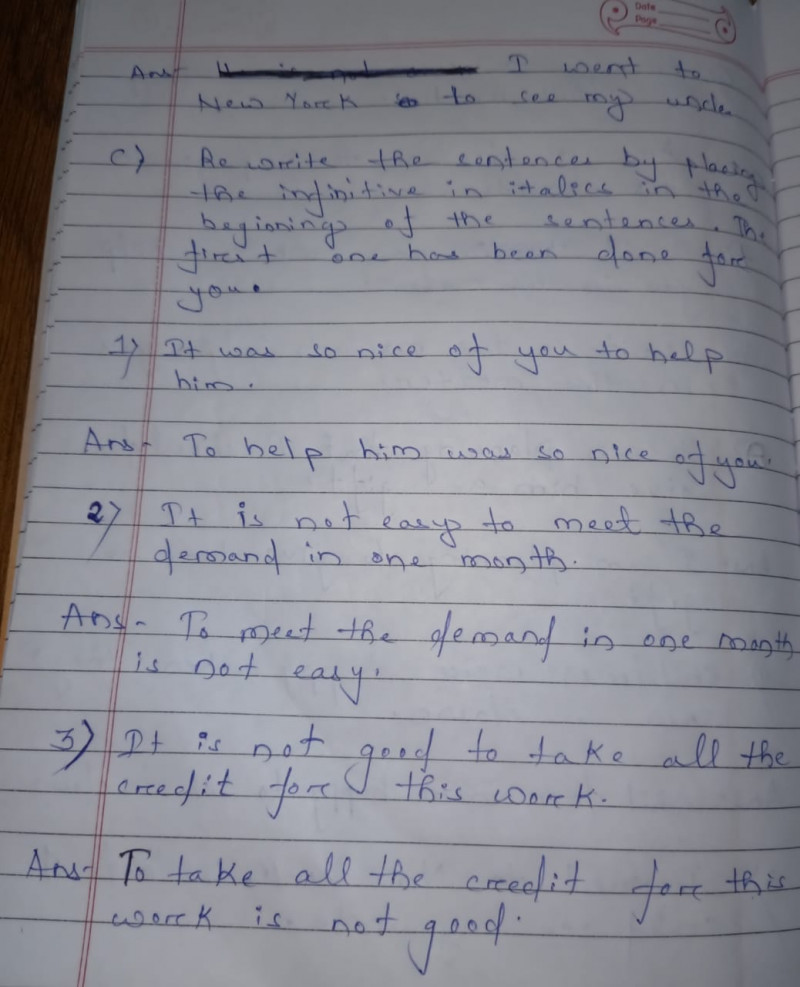 Date
Page
Ans- I went to
New York to see my uncle
C) Rewrite the sentences by placing
the infinitive in italics in the
begioning of the sentences. The
first one has been done for
you.
1) It was so nice of you to help
him.
Ans- To help him was so nice of you.
2) It is not easy to meet the
demand in one month.
Ans- To meet the demand in one month
is not easy.
3) It is not good to take all the
credit for this work.
Ans- To take all the credit for this
work is not good.